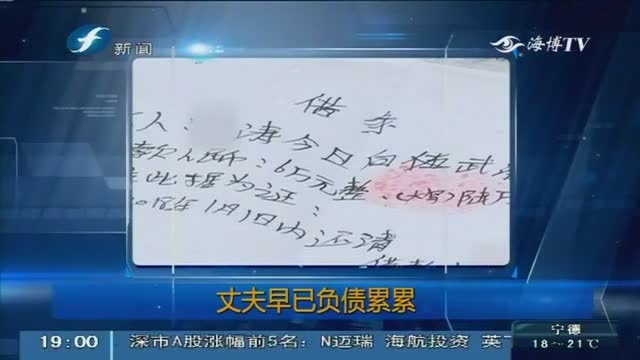 新闻
海博TV
借条
人： 涛今日向伍武
款人币：6万元整.(大写)陆万
此据为证：
2018年1月1日内还清
丈夫早已负债累累
宁德
19:00 深市A股涨幅前5名：N迈瑞 海航投资 英 18～21℃